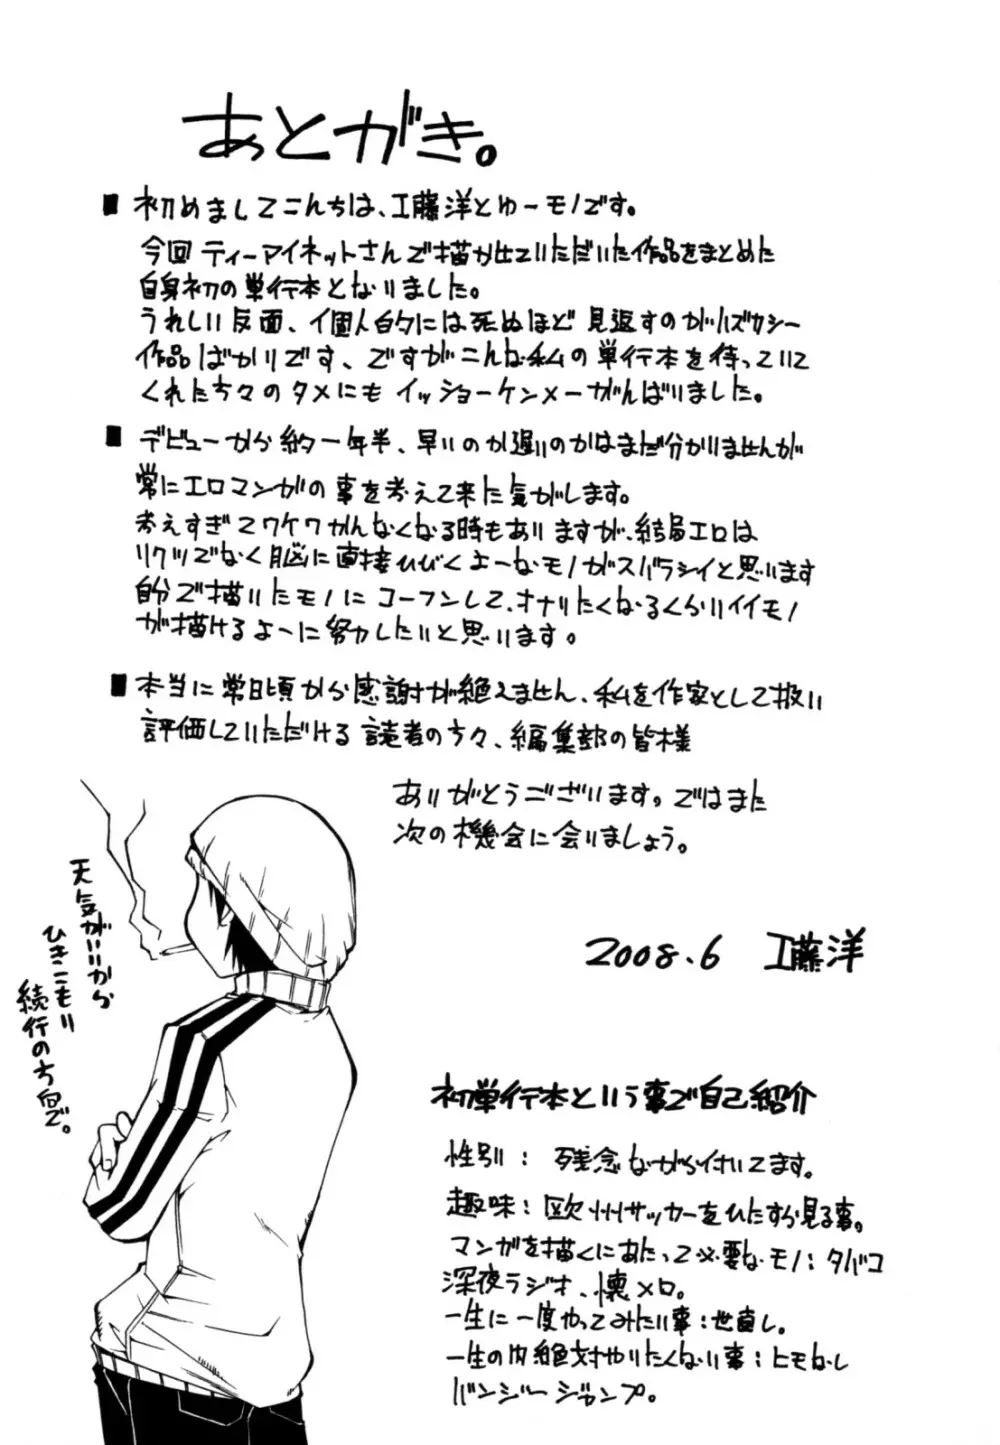 あとがき。
■初めましてこんちは、工藤洋とゆーモノです。
今回ティーアイネットさんで描かせていただいた作品をまとめた
自身初の単行本となりました。
うれしい反面、個人的には死ぬほど見返すのがハズカシー
作品ばかりです、ですがこんな私の単行本を待っていて
くれた方々のタメにもイッショーケンメーがんばりました。
■デビューから約一年半、早いのか遅いのかはまだ分かりませんが
常にエロマンガの事を考えて来た気がします。
考えすぎてワケワカんなくなる時もありますが、結局エロは
リクツでなく脳に直接ひびくよーなモノがスバラシイと思います
自分で描いたモノにコーフンして、オナりたくなるくらいイイモノ
が描けるよーに努力したいと思います。
■本当に常日頃から感謝が絶えません、私を作家として扱い
評価していただける読者の方々、編集部の皆様
ありがとうございます。ではまた
次の機会に会いましょう。
天気がいいから
ひきこもり
続行の方向で。
2008.6 工藤洋
初単行本という事で自己紹介
性別：残念ながら付いてます。
趣味：欧州サッカーをひたすら見る事。
マンガを描くにあたって必要なモノ：タバコ
深夜ラジオ、懐メロ。
一生に一度やってみたい事：世直し。
一生の内絶対やりたくない事：ヒモなし
バンジージャンプ。